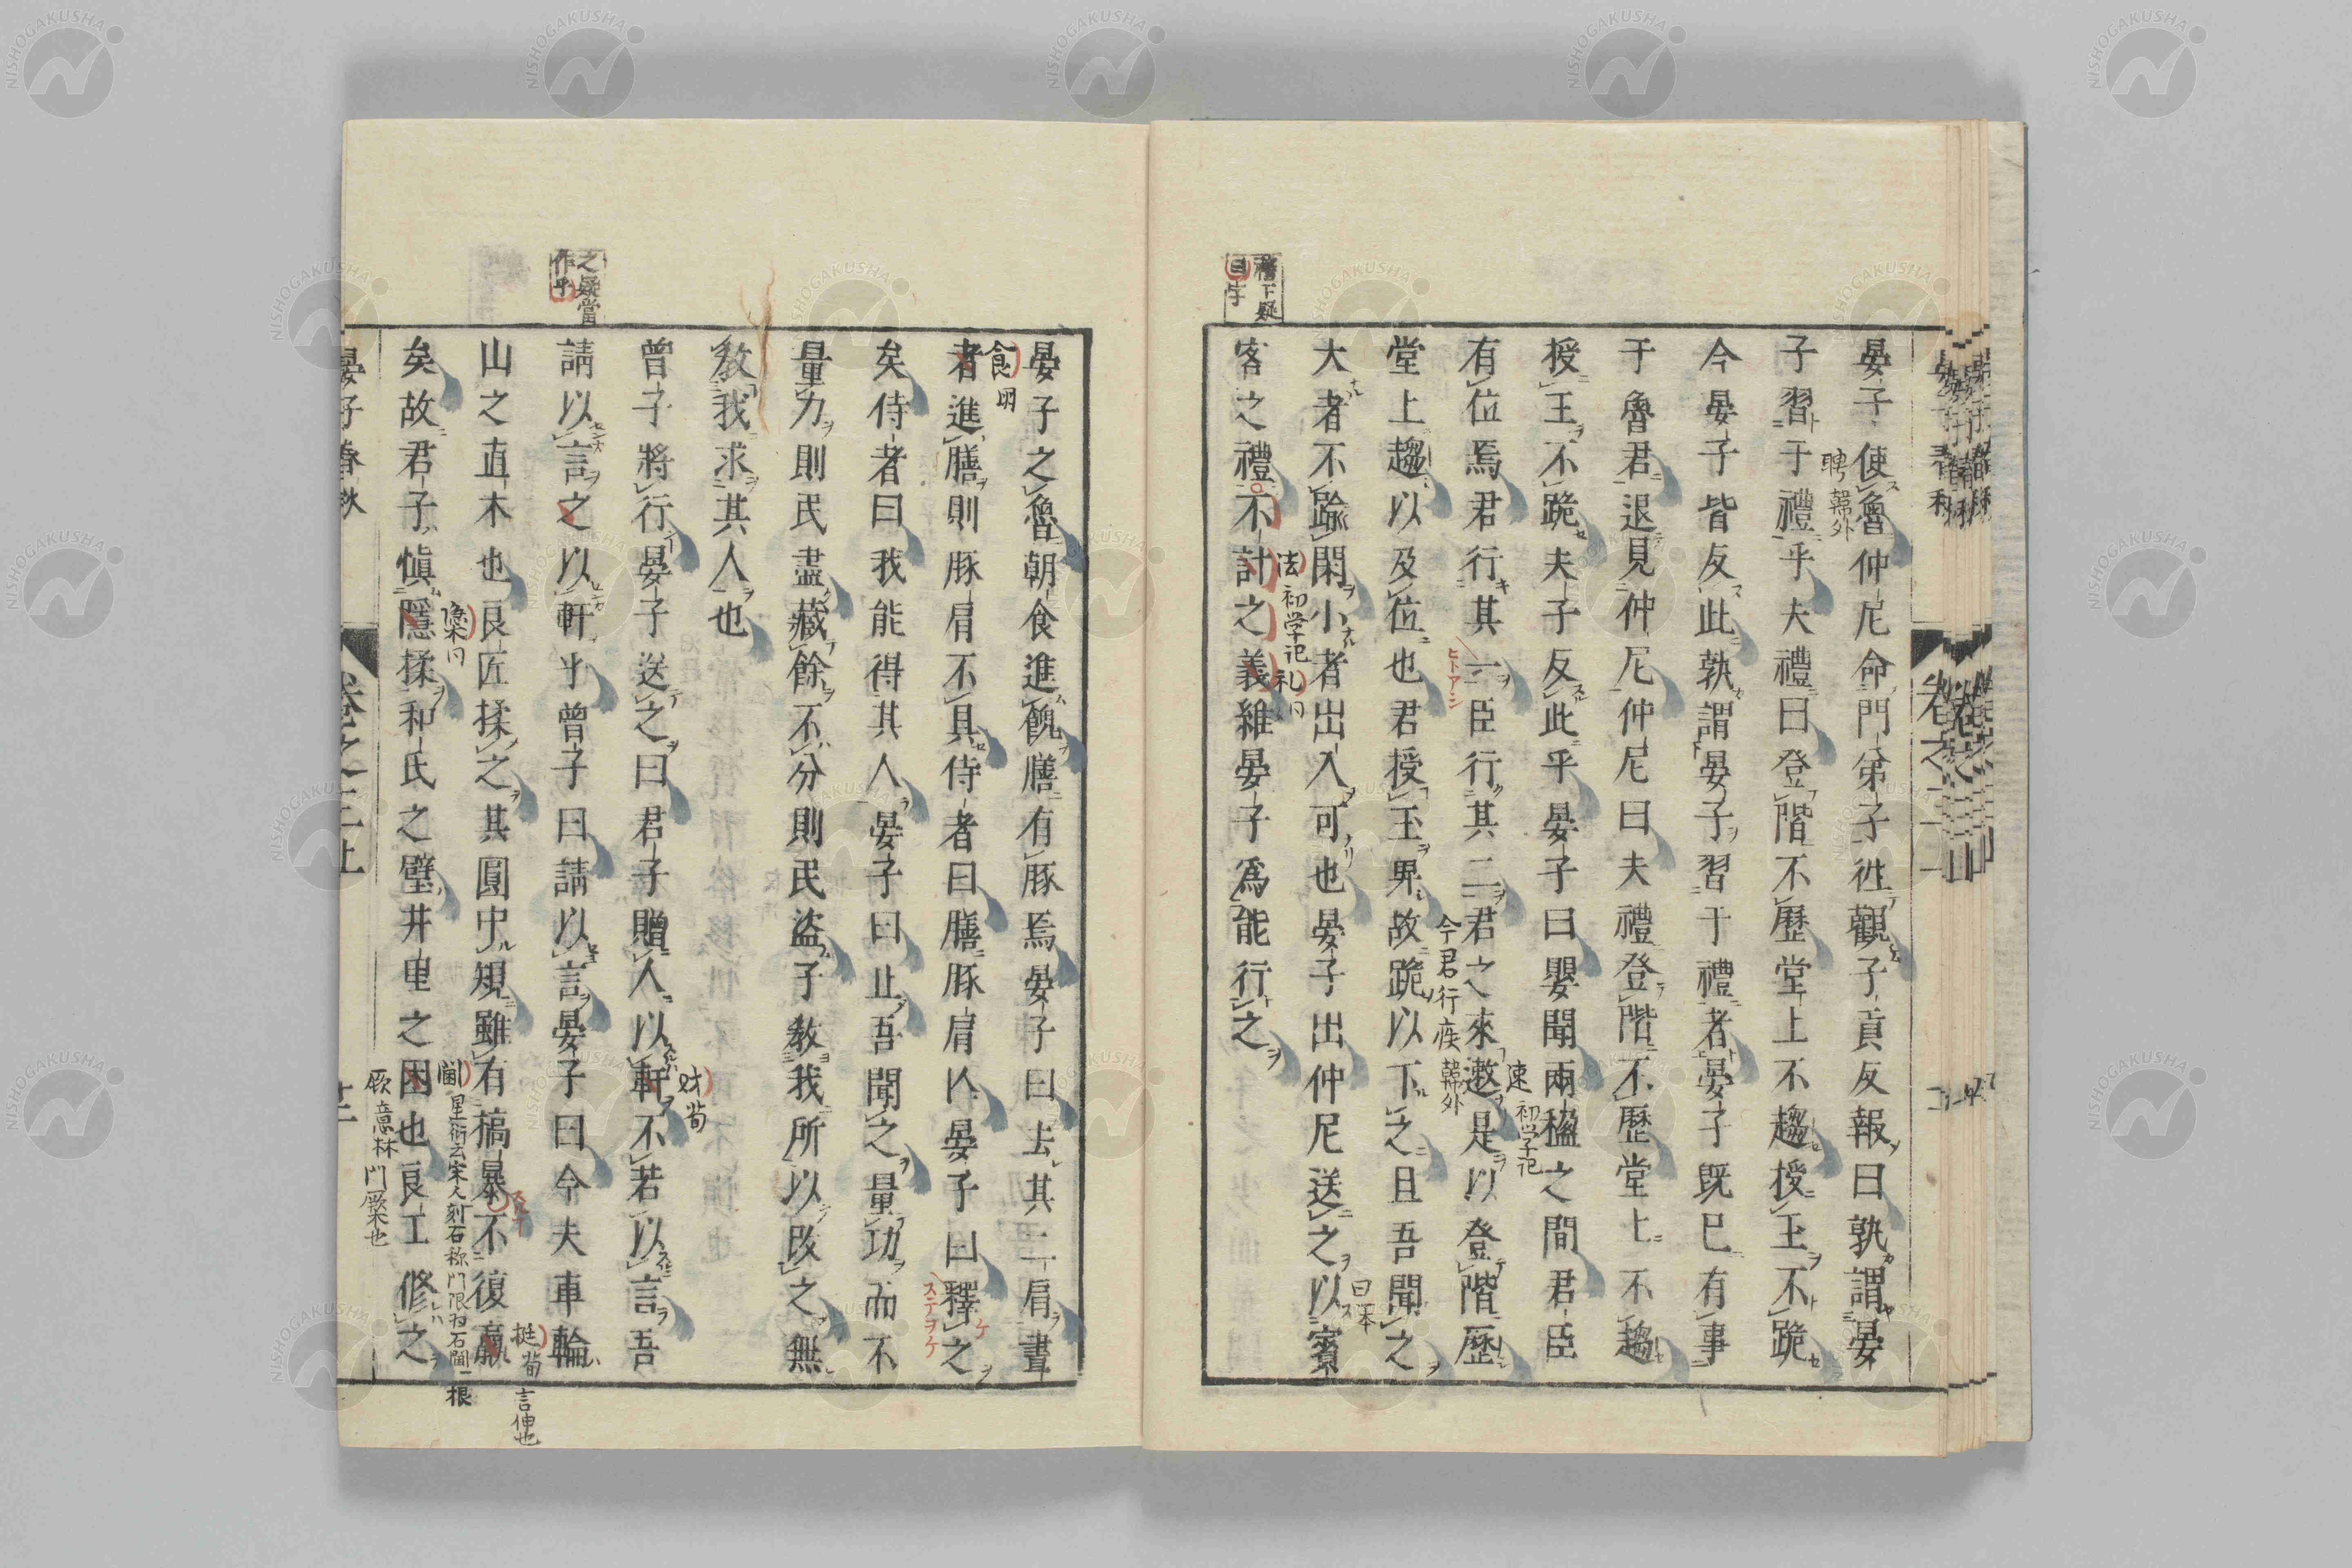 晏子使魯仲尼命門弟子徃觀子貢反報曰孰謂晏
子習于禮乎夫禮曰登階不歷堂上不趨授玉不跪
今晏子皆反此孰謂晏子習于禮者晏子既已有事
于魯君退見仲尼仲尼曰夫禮登階不歷堂上不趨
授玉不跪夫子反此乎晏子曰嬰聞兩楹之間君臣
有位焉君行其一臣行其二君之來遬是以登階歷
堂上趨以及位也君授玉卑故跪以下之且吾聞之
大者不踰閑小者出入可也晏子出仲尼送之以賓
客之禮不計之義維晏子爲能行之
聘 韓外
今君行疾 韓外
速 初学記
法 初学記
礼
日本
ヒトアシ
禮下疑
曰字
晏子之魯朝食進餽膳有豚焉晏子曰去其二肩晝
者進膳則豚肩不具侍者曰膳豚肩亾晏子曰釋之
矣侍者曰我能得其人晏子曰止吾聞之量功而不
量力則民盡藏餘不分則民盜子敎我所以改之無
敎我求其人也
曾子將行晏子送之曰君子贈人以軒不若以言吾
請以言之以軒乎曾子曰請以言晏子曰今夫車輪
山之直木也良匠揉之其圓中規雖有槁暴不復嬴
矣故君子愼隱揉和氏之璧井里之困也良工修之
食
ステヲケ
财 荀
挺 荀 言伸也
之疑當
作乎
厥 意林
門橛也
晏子春秋
卷之二上